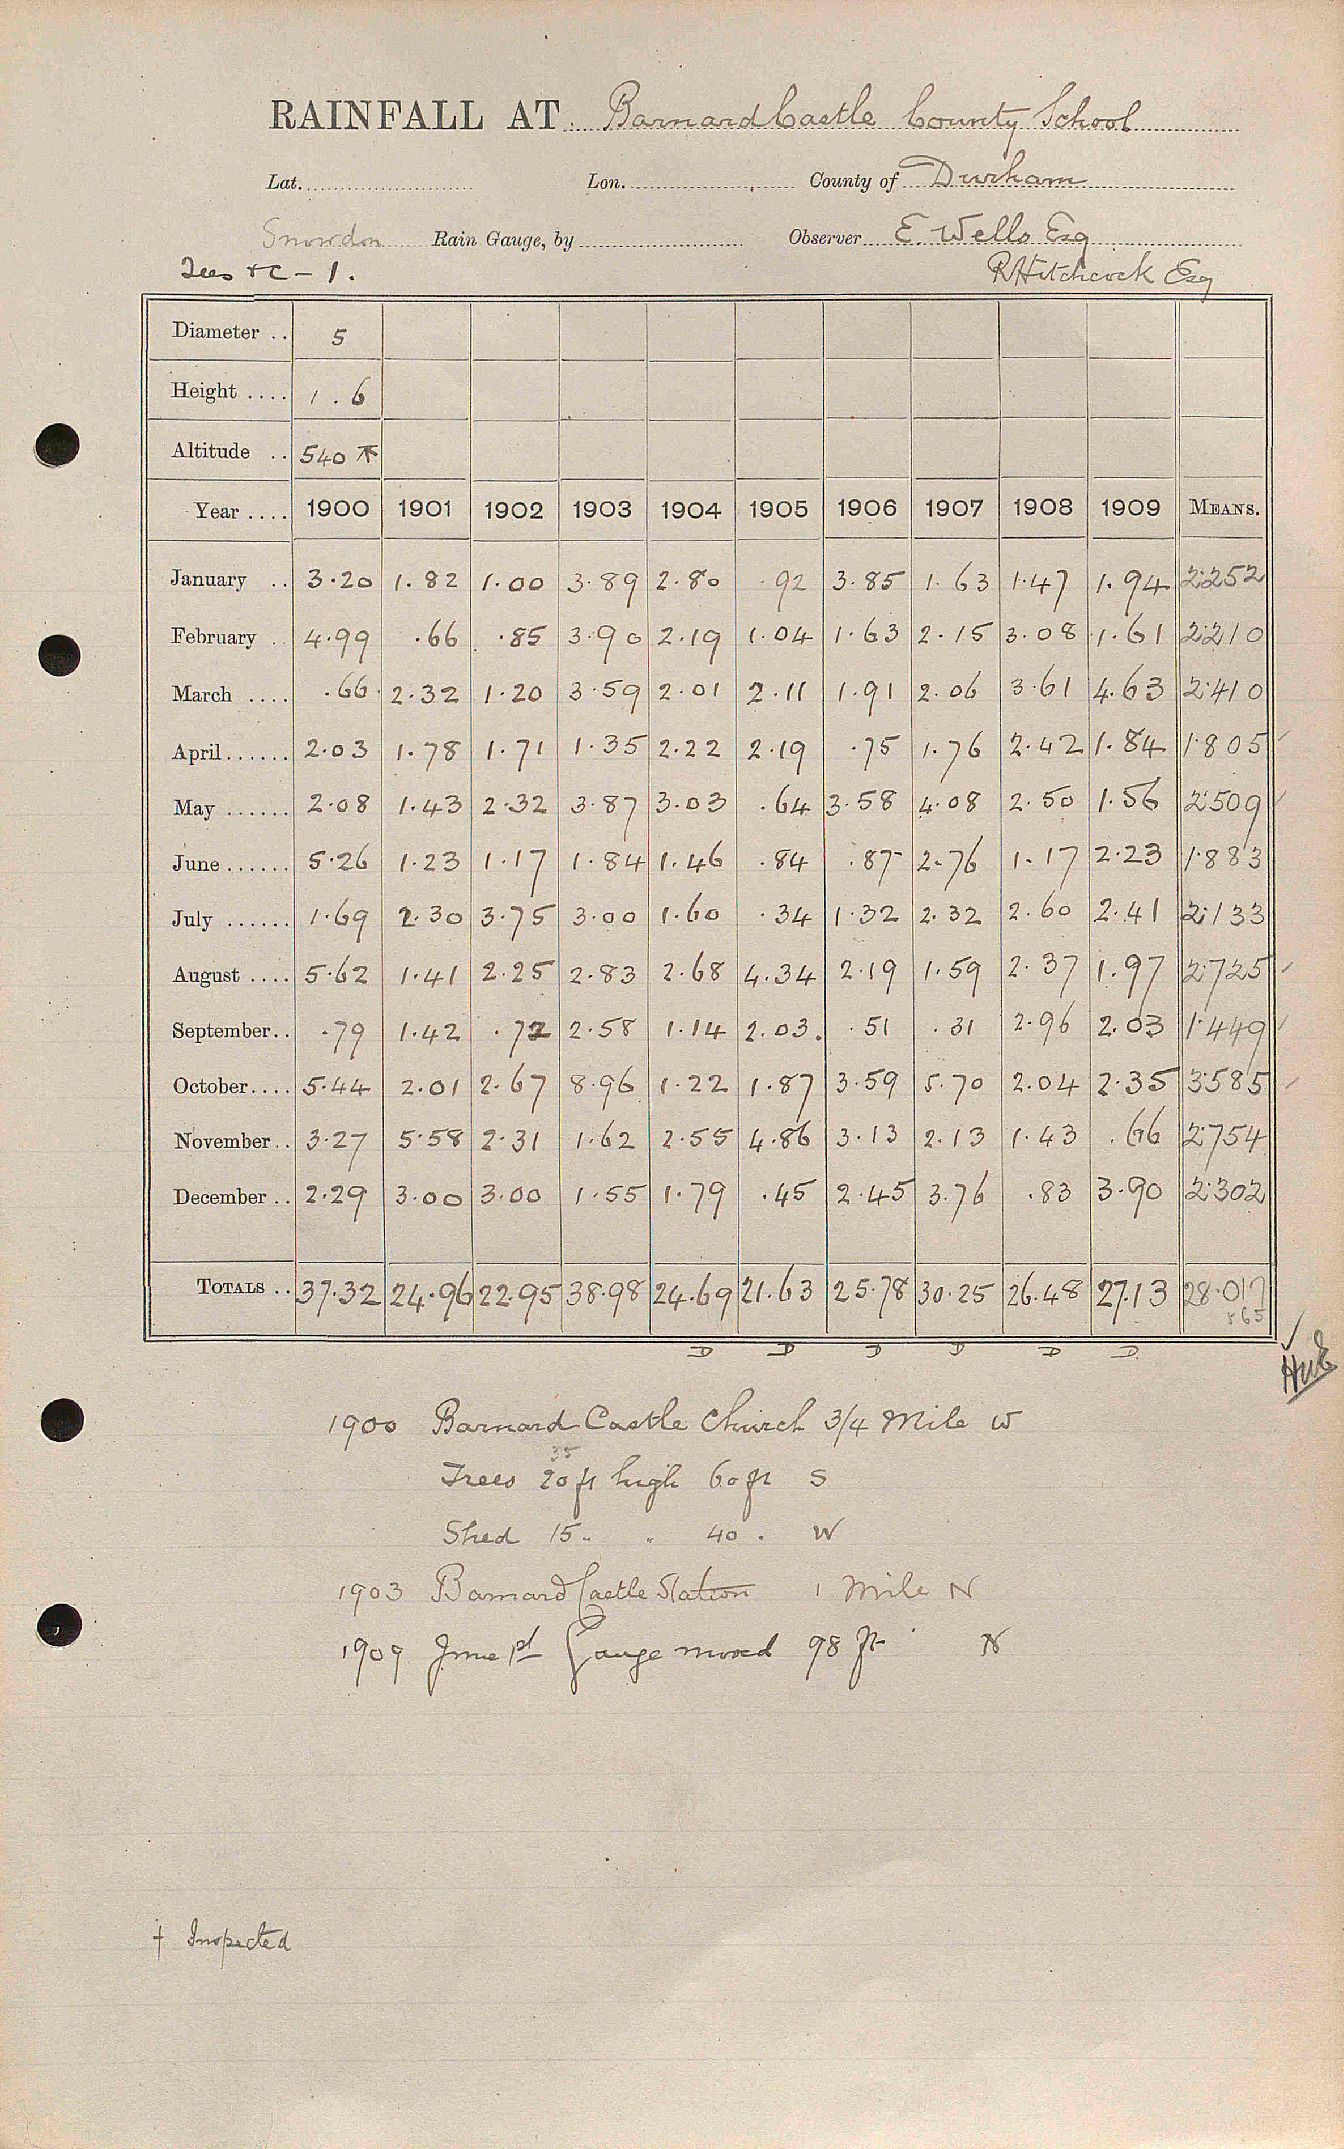 RAINFALL AT Barnard Castle County School
Lat. Lon. County of Durham
Snowdon Rain Gauge, by Observer E. Wells Esq
Tees &c - 1. R Hitchcock Esq
Diameter .. 5
Height .... 1.6
Altitude .. 540
Year .... 1900 1901 1902 1903 1904 1905 1906 1907 1908 1909 MEANS.
January .. 3.20 1.82 1.00 3.89 2.80 .92 3.85 1.63 1.47 1.94 2.252
February .. 4.99 .66 .85 3.90 2.19 1.04 1.63 2.15 3.08 1.61 2.210
March .... .66 2.32 1.20 3.59 2.01 2.11 1.91 2.06 3.61 4.63 2.410
April...... 2.03 1.78 1.71 1.35 2.22 2.19 .75 1.76 2.42 1.84 1.805
May ...... 2.08 1.43 2.32 3.87 3.03 .64 3.58 4.08 2.50 1.56 2.509
June...... 5.26 1.23 1.17 1.84 1.46 .84 .87 2.76 1.17 2.23 1.883
July ...... 1.69 2.30 3.75 3.00 1.60 .34 1.32 2.32 2.60 2.41 2.133
August .... 5.62 1.41 2.25 2.83 2.68 4.34 2.19 1.59 2.37 1.97 2.725
September.. .79 1.42 .72 2.58 1.14 2.03 .51 .31 2.96 2.03 1.449
October.... 5.44 2.01 2.67 8.96 1.22 1.87 3.59 5.70 2.04 2.35 3.585
November.. 3.27 5.58 2.31 1.62 2.55 4.86 3.13 2.13 1.43 .66 2.754
December .. 2.29 3.00 3.00 1.55 1.79 .45 2.45 3.76 .83 3.90 2.302
TOTALS .. 37.32 24.96 22.95 38.98 24.69 21.63 25.78 30.25 26.48 27.13 28.017
D D D D D D
1900 Barnard Castle Church 3/4 Mile W
35
Trees 20 ft high 60 ft S
Shed 15 " " 40 . W
1903 Barnard Castle Station 1 Mile N
1909 June 1st Gauge moved 98 ft N
† Inspected